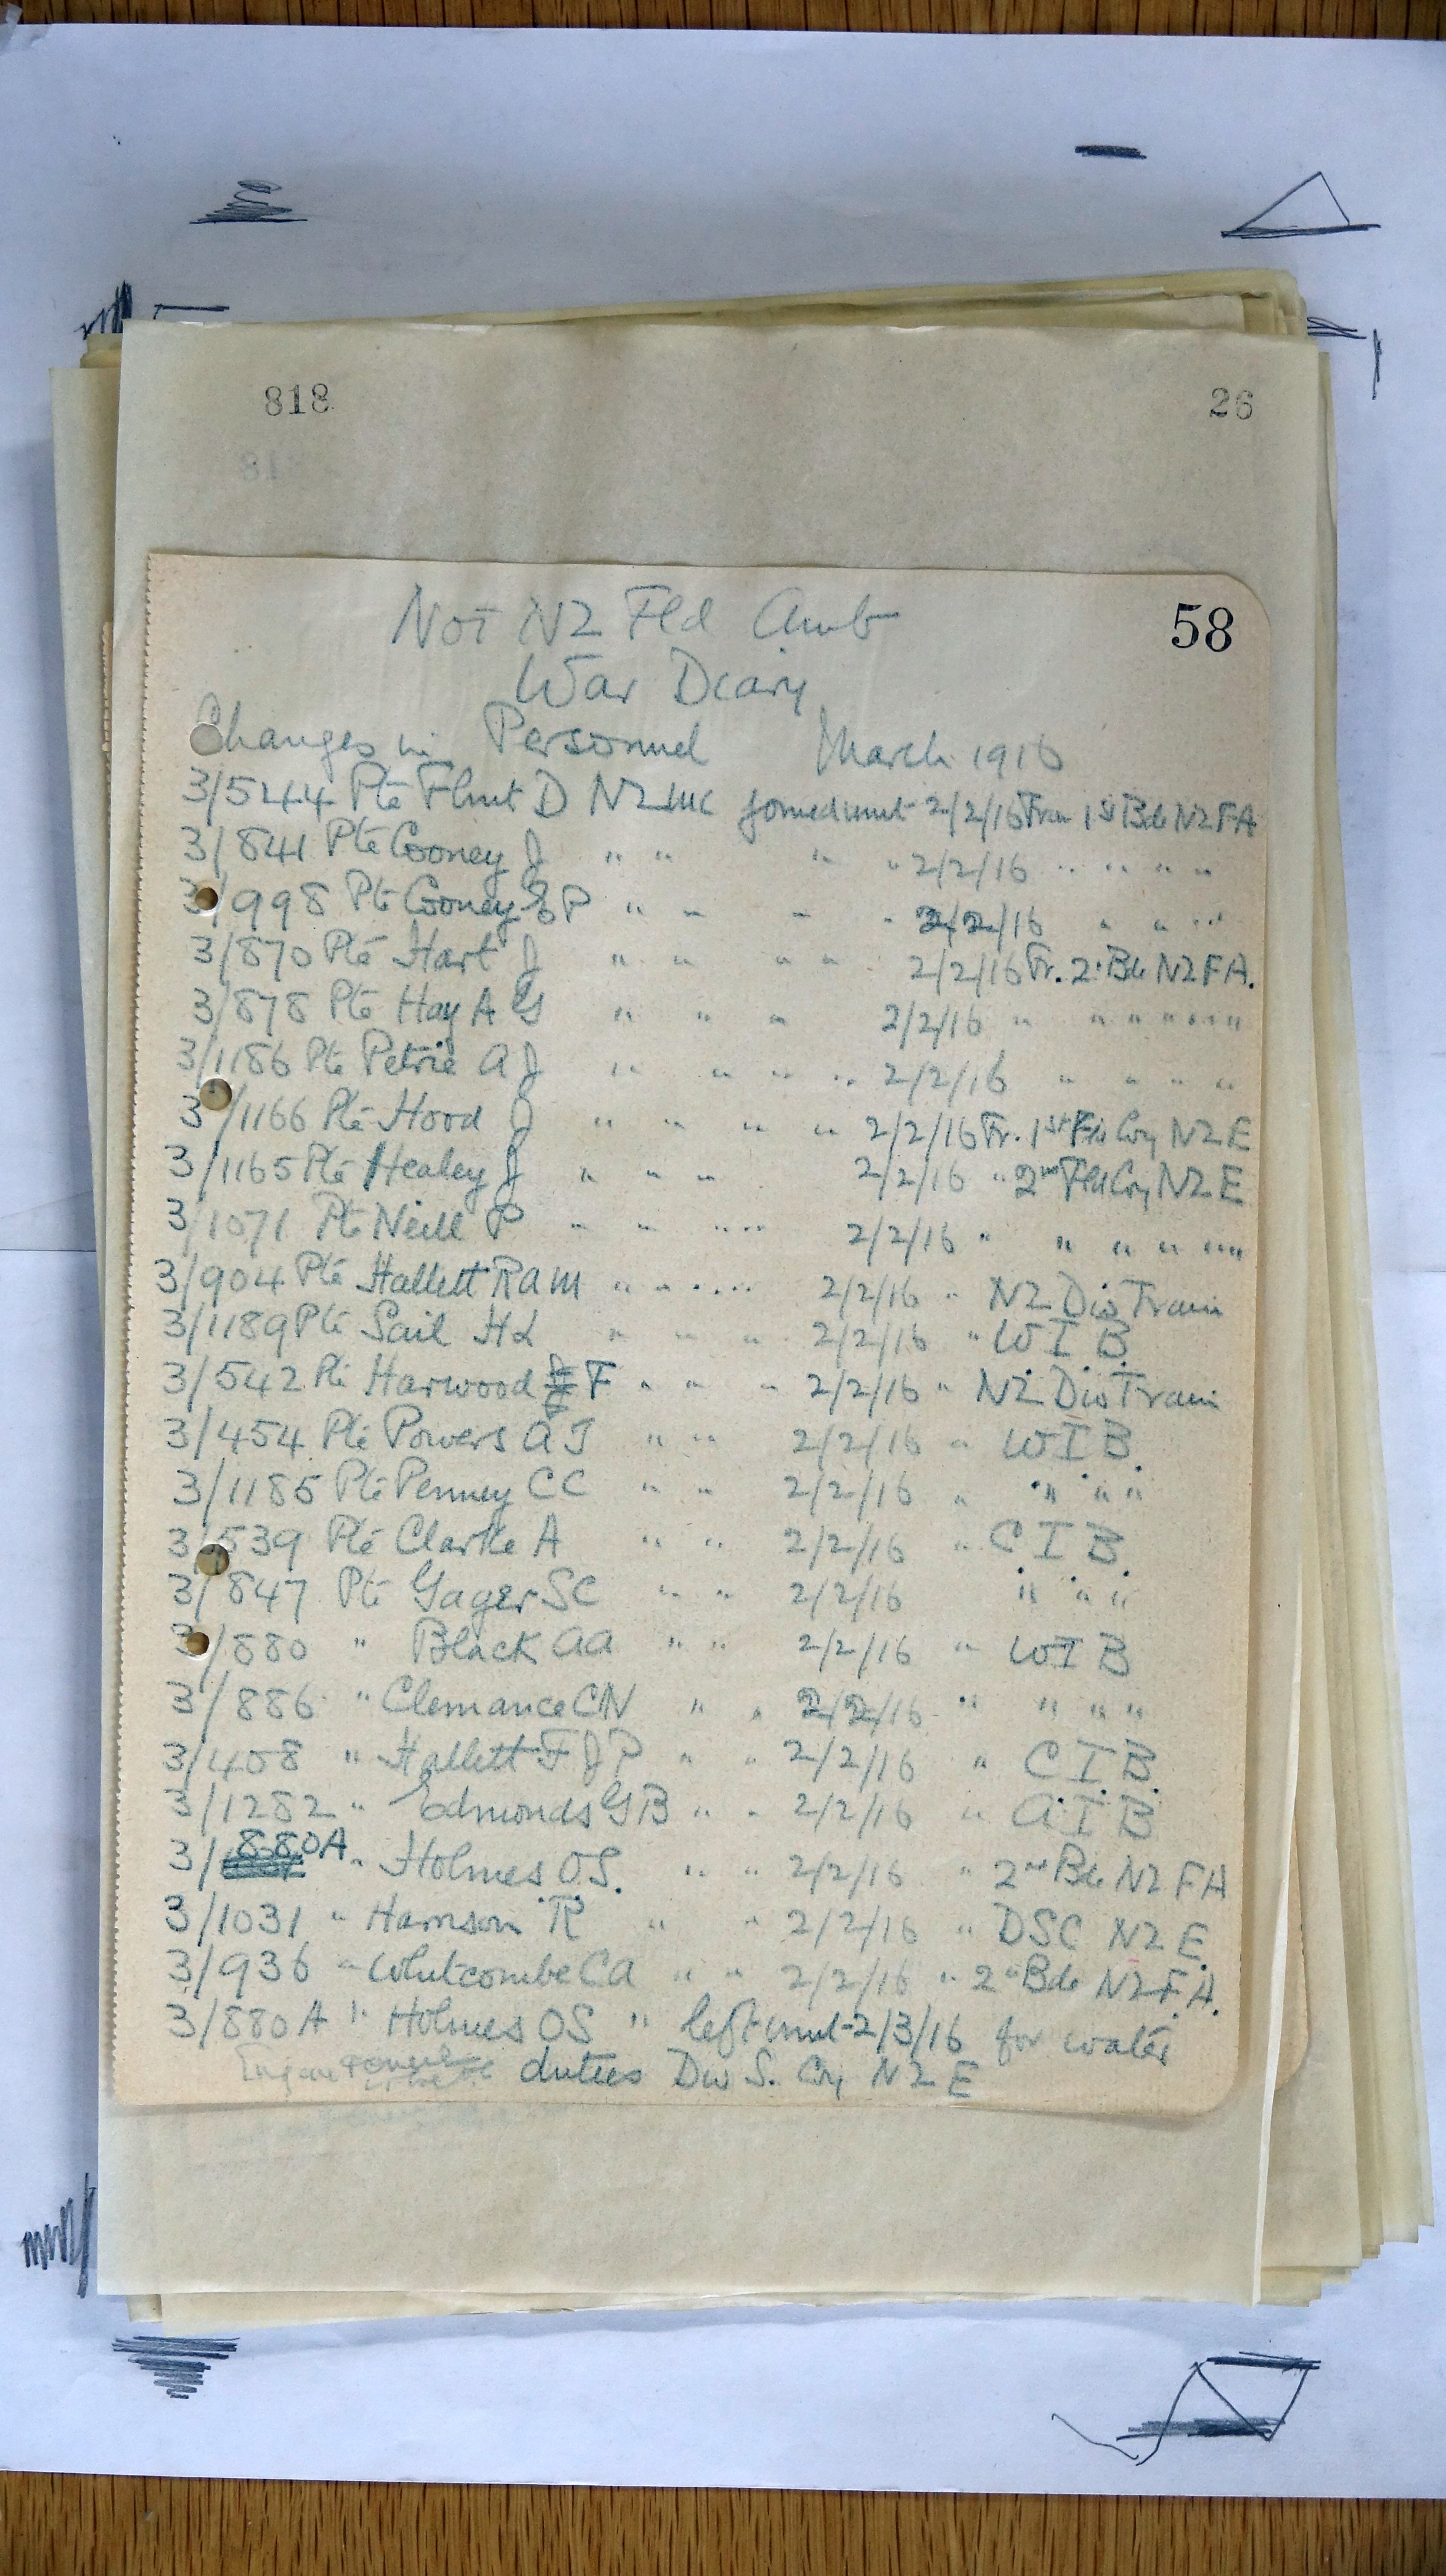 818 26
58
No 1 NZ Fld Amb
War Diary
Changes in Personnel March 1916
3/544 Pte Flint D NZMC joined unit 2/2/16 From 1st Bde NZFA
3/841 Pte Cooney J " " " " 2/2/16 " " " " "
3/998 Pte Cooney E P " " " " 2/2/16 " " " "
3/870 Pte Hart J " " " " 2/2/16 Fr. 2 Bde NZFA.
3/878 Pte Hay A G " " " 2/2/16 " " " " " " "
3/1186 Pte Petrie A J " " " " 2/2/16 " " " "
3/1166 Pte Hood J " " " " 2/2/16 Fr. 1st Fld Coy NZE
3/1165 Pte Healey J " " " 2/2/16 " 2nd Fld Coy NZE
3/1071 Pte Neill P " " " " 2/2/16 " " " " " "
3/904 Pte Hallett RAM " " " " " 2/2/16 " NZ Div Train
3/1189 Pte Sail HL " " " 2/2/16 " W I B
3/542 Pte Harwood F " " " 2/2/16 " NZ Div Train
3/454 Pte Powers A J " " 2/2/16 " W I B.
3/1185 Pte Penney CC " " 2/2/16 " " " "
3/539 Pte Clarke A " " 2/2/16 " C I B
3/847 Pte Gager SC " " 2/2/16 " " "
3/880 " Black AA " " 2/2/16 " W I B
3/886 " Clemance CN " " 2/2/16 " " " "
3/408 " Hallett F J P " " 2/2/16 " C I B
3/1282 " Edmonds GB " " 2/2/16 " A.I.B
3/880A " Holmes O.S. " " 2/2/16 " 2nd Bde NZ FA
3/1031 " Harrison R " " 2/2/16 " DSC NZ E
3/936 " Whitcombe CA " " 2/2/16 " 2nd Bde NZF.A.
3/880A " Holmes OS " left unit 2/3/16 for water
duties Div S. Coy NZE